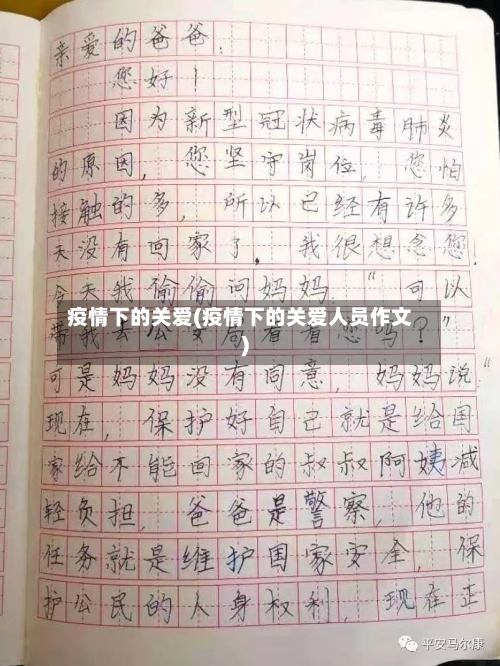 亲爱的爸爸:
您好!
因为新型冠状病毒肺炎
的原因,您坚守岗位,您怕
接触的多,所以已经有许多
天没有回家了,我很想念您!
今天我偷偷问妈妈,“可以
疫情下的关爱(疫情下的关爱人员作文
)
带我去公安局看看您吗?”
可是妈妈没有同意,妈妈说
现在,保护好自己就是给国
家给不能回家的叔叔阿姨减
轻负担,爸爸是警察,他的
任务就是维护国家安全,保
护公民的人身权利,现在正
平安马尔康